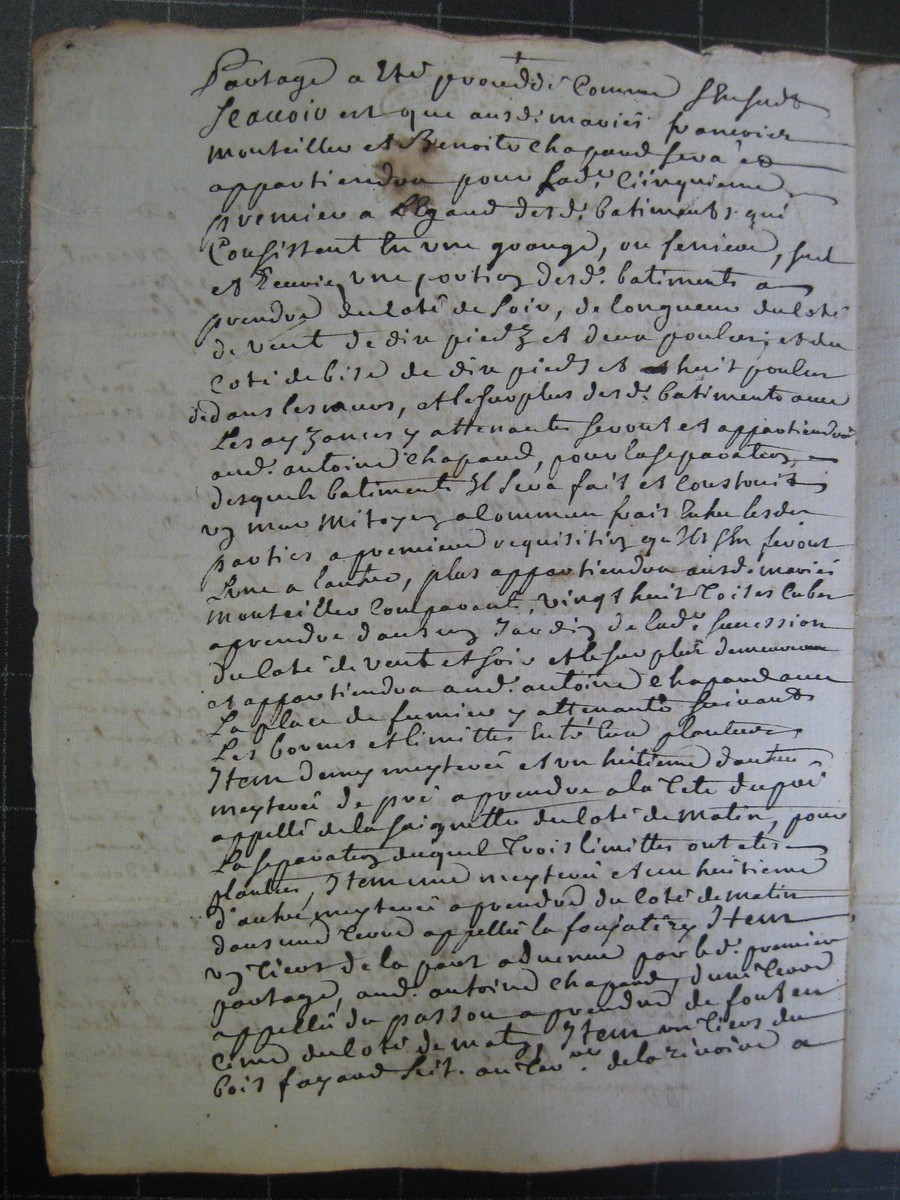 Partage a Eté procedé Comme S'Ensuit
Scavoir est que ausd. mariés francoise
monteiller et Benoit Chapaud sera et
appartiendra pour lad. Cinquieme,
premier a L'Egard desd. batiments qui
Consistent En une grange, ou feniere,
et Ecurie, une portion desd. batiments a
prendre du Coté de Soir, de longueur du Coté
de vent de dix piedz et deux pouces, et du
Coté de bise de dix pieds et huit pouces
dedans les murs, et le Surplus desd. batiments avec
Les ayzances y attenantes seront et appartiendront
aud. antoine Chapaud, pour la separation,
desquels batiments Il Sera fait et Construit
un mur Mitoyen a Commun frais Entre lesd.
parties a premiere requisition qu'Ils S'En feront
L'une a l'autre, plus appartiendra ausd. mariés
monteiller Comparant, vingt huit Toises Cubes
a prendre dans un Jardin de lad. Succession
du Coté de vent et soir et le Surplus demeurera
et appartiendra aud. antoine Chapaud avec
La place de fumier y attenante Suivant
Les bornes et limittes Entre Eux plantées,
Item demy meyteré et un huitieme d'autre
meyteré de pré a prendre a la Tete du pré
appellé de la Saignette du Coté de Matin, pour
La Separation duquel Trois limittes ont eté
plantées, Item une meyteré et un huitieme
d'autre meyteré a prendre du Coté de Matin
dans une Terre appellée la Item
un Tiers de la part advenue par led. premier
partage, aud. antoine Chapaud, d'une Terre
appellée du passou a prendre de font en
Cime du Coté de matin, Item un Tiers du
bois fayard Sit. au Terr.re de la a